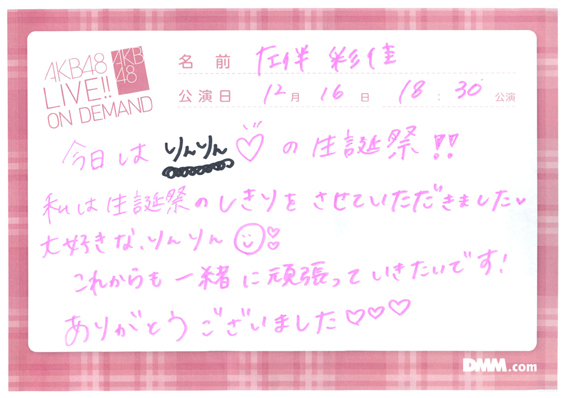 AKB48
LIVE!!
ON DEMAND
AKB
48
名前 左伴 彩佳
公演日 12月 16日 18:30 公演
今日は りんりん♡の生誕祭!!
私は生誕祭のしきりをさせていただきました♥
大好きな、りんりん
これからも一緒に頑張っていきたいです!
ありがとうございました♡♡♡
DMM.com